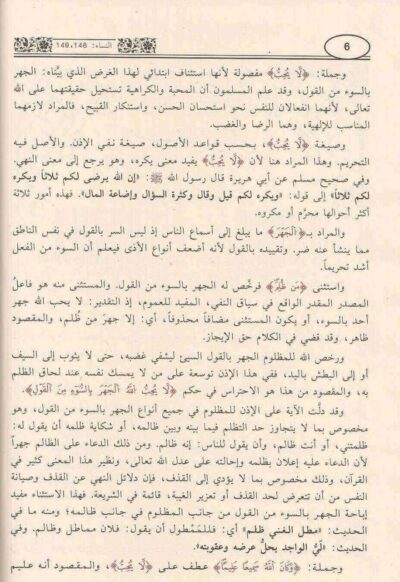 6
النساء: 148، 149
وجملة: ﴿لَّا يُحِبُّ﴾ مفصولة لأنها استئناف ابتدائي لهذا الغرض الذي بيّناه: الجهر
بالسوء من القول، وقد علم المسلمون أن المحبة والكراهية تستحيل حقيقتهما على الله
تعالى، لأنهما انفعالان للنفس نحو استحسان الحسن، واستنكار القبيح، فالمراد لازمهما
المناسب للإلهية، وهما الرضا والغضب.
وصيغة ﴿لَّا يُحِبُّ﴾، بحسب قواعد الأصول، صيغة نفي الإذن. والأصل فيه
التحريم. وهذا المراد هنا لأن ﴿لَّا يُحِبُّ﴾ يفيد معنى يكره، وهو يرجع إلى معنى النهي.
وفي صحيح مسلم عن أبي هريرة قال رسول الله ﷺ: «إن الله يرضى لكم ثلاثاً ويكره
لكم ثلاثاً» إلى قوله: «ويكره لكم قيل وقال وكثرة السؤال وإضاعة المال». فهذه أمور ثلاثة
أكثر أحوالها محرّم أو مكروه.
والمراد بـ﴿الْجَهْرَ﴾ ما يبلغ إلى أسماع الناس إذ ليس السر بالقول في نفس الناطق
مما ينشأ عنه ضر. وتقييده بالقول لأنه أضعف أنواع الأذى فيعلم أن السوء من الفعل
أشد تحريماً.
واستثنى ﴿مَن ظُلِمَ﴾ فرخّص له الجهر بالسوء من القول. والمستثنى منه هو فاعلُ
المصدر المقدر الواقع في سياق النفي، المفيد للعموم، إذ التقدير: لا يحب الله جهر
أحد بالسوء، أو يكون المستثنى مضافاً محذوفاً، أي: إلا جهرَ من ظُلم، والمقصود
ظاهر، وقد قضي في الكلام حق الإيجاز.
ورخص الله للمظلوم الجهر بالقول السيئ ليشفي غضبه، حتى لا يثوب إلى السيف
أو إلى البطش باليد، ففي هذا الإذن توسعة على من لا يمسك نفسه عند لحاق الظلم
به، والمقصود من هذا هو الاحتراس في حكم ﴿لَّا يُحِبُّ اللَّهُ الْجَهْرَ بِالسُّوءِ مِنَ الْقَوْلِ﴾.
وقد دلّت الآية على الإذن للمظلوم في جميع أنواع الجهر بالسوء من القول، وهو
مخصوص بما لا يتجاوز حد التظلم فيما بينه وبين ظالمه، أو شكاية ظلمه أن يقول له:
ظلمتني، أو أنت ظالم، وأن يقول للناس: إنه ظالم. ومن ذلك الدعاء على الظالم جهراً
لأن الدعاء عليه إعلان بظلمه وإحالته على عدل الله تعالى، ونظير هذا المعنى كثير في
القرآن، وذلك مخصوص بما لا يؤدي إلى القذف، فإن دلائل النهي عن القذف وصيانة
النفس من أن تتعرض لحد القذف أو تعزير الغيبة، قائمة في الشريعة. فهذا الاستثناء مفيد
إباحة الجهر بالسوء من القول من جانب المظلوم في جانب ظالمه؛ ومنه ما في
الحديث: «مطل الغني ظلم» أي: فللمَمْطول أن يقول: فلان مماطل وظالم. وفي
الحديث: «لَيُّ الواجد يحلُّ عرضه وعقوبته».
وجملة: ﴿وَكَانَ اللَّهُ سَمِيعًا عَلِيمًا﴾ عطف على ﴿لَّا يُحِبُّ﴾، والمقصود أنه عليم